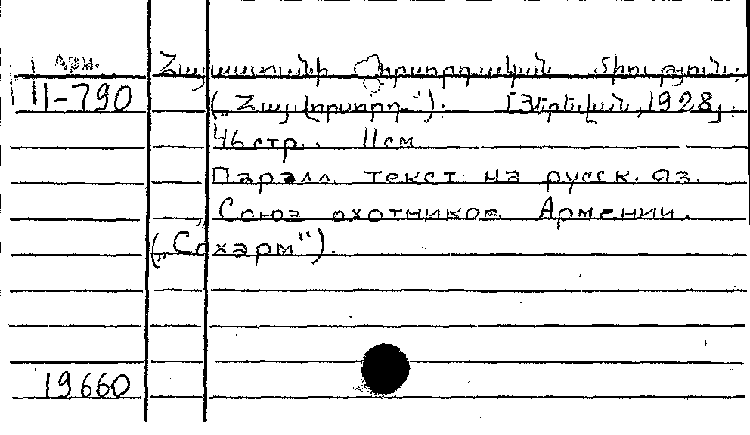 Арм.
Հայաստանի Որսորդական միություն.
11-790
(„Հայ վորսորդ"). [Յերեվան, 1928].
46 стр. 11 см
Паралл. текст на русск. яз.
Союз охотников Армении.
(„Сохарм").
19660